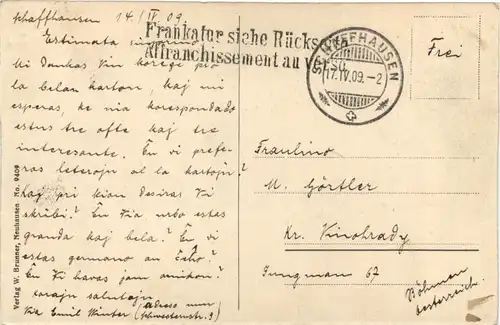 Schaffhausen 14/IV 09
Frankatur siehe Rücks
Affranchissement au v
SCHAFFHAUSEN
17.IV.09.-2
Frei
Estimata
Mi dankas Vin korege pro
la belan karton, kaj mi
esperas, ke nia korespondado
estus tre ofte kaj tre
interesante. Ĉu vi prefe-
ras leterojn al la kartojn?
Kaj pri kion desiras Vi
skribi? Ĉu Via urbo estas
granda kaj bela? Ĉu vi
estas germano an ĉeĥo?
Ĉu Vi havas jam amikon?
korajn salutojn
Via Emil Winter (adreso nun
Schwesternstr. 3)
Fraulino
M. Görtler
Kr. Vinohrady
Jungman 67
Böhmen
Oesterreich.
Verlag W. Brunner, Neuhausen No. 9409